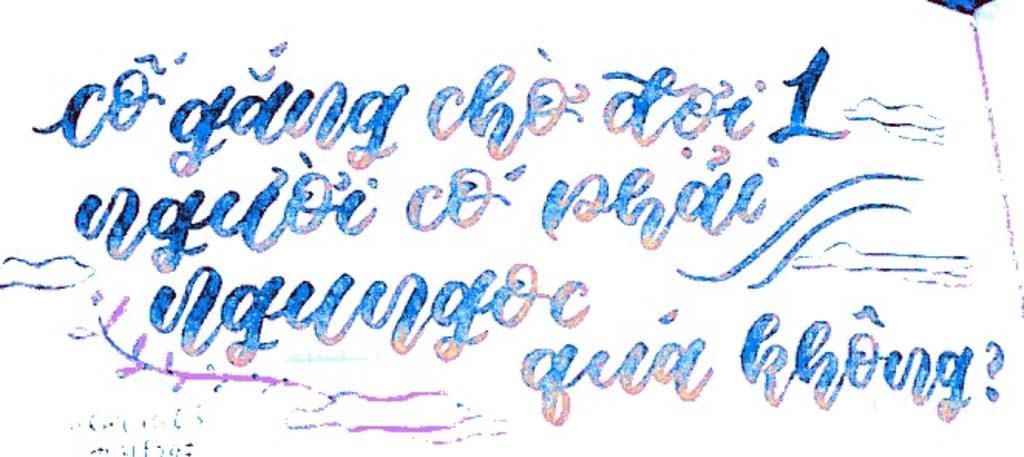 cố gắng chờ đợi 1
người có phải
ngungoc
quá không?